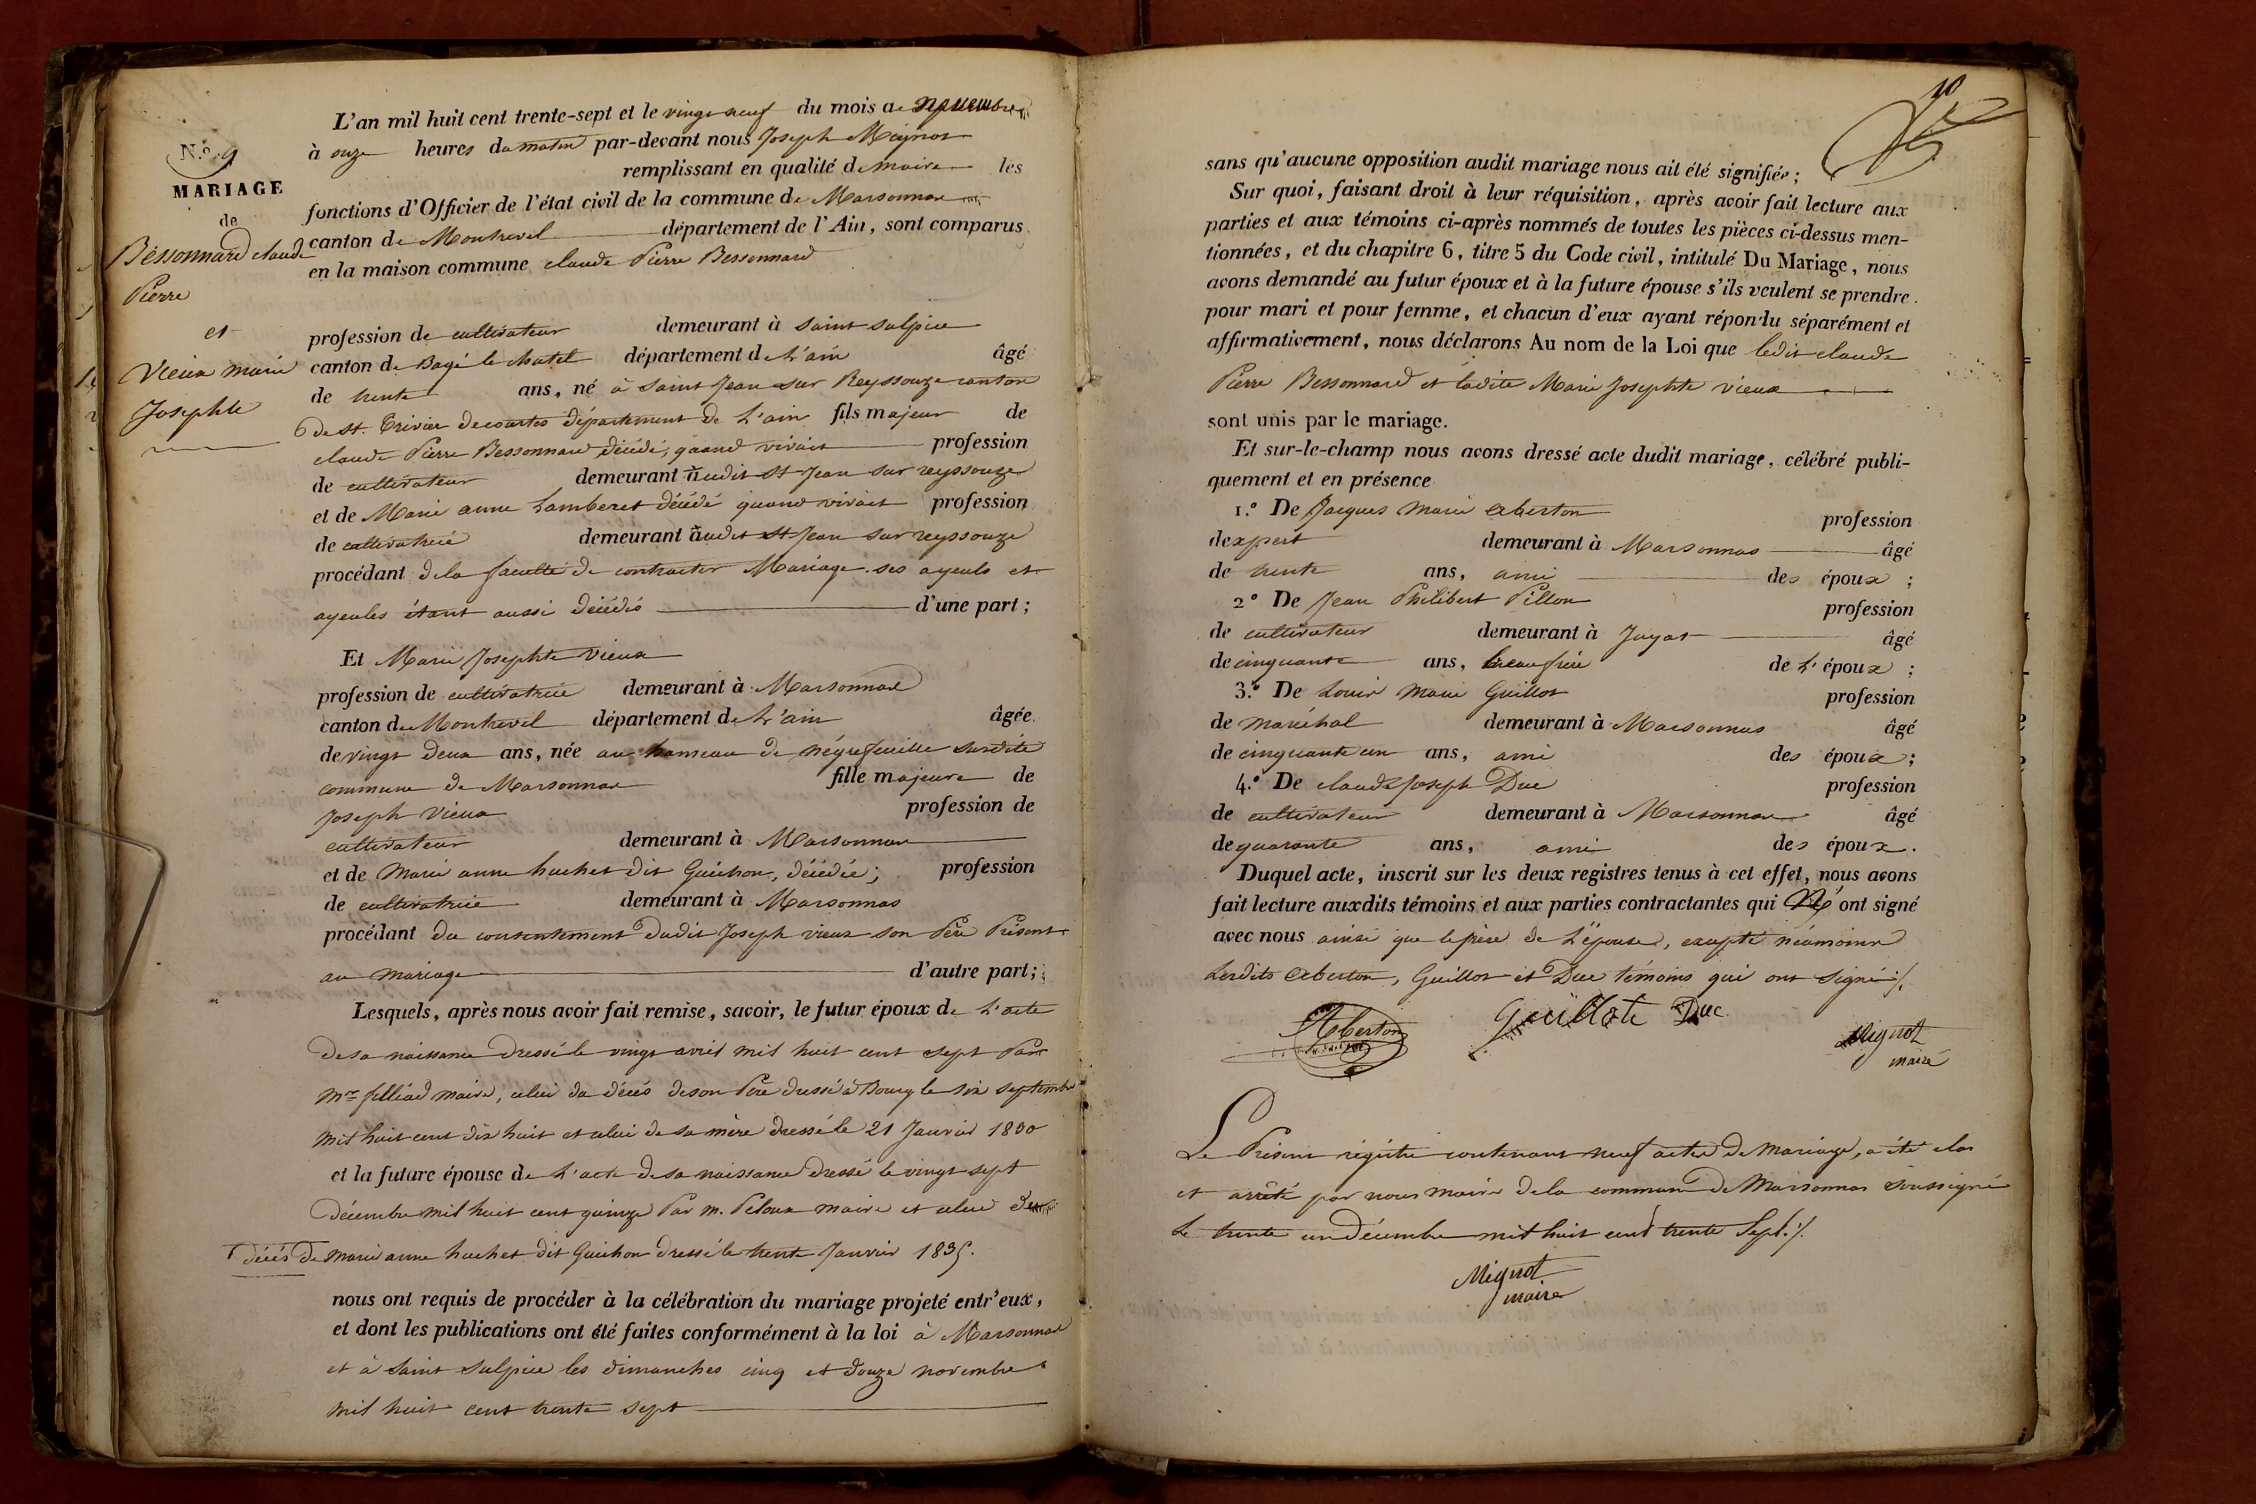 N.º 9
MARIAGE
de
Bessonnard claude
Pierre
et
Vieux marie
Josephte
L'an mil huit cent trente-sept et le vingt neuf du mois de novembre
à onze heures du matin par-devant nous Joseph Mignot
remplissant en qualité de maire les
fonctions d'Officier de l'état civil de la commune de Marsonnas
canton de Montrevel département de l'Ain, sont comparus
en la maison commune claude Pierre Bessonnard
profession de cultivateur demeurant à saint sulpice
canton de Bagé le chatel département de L'ain âgé
de trente ans, né à saint Jean sur Reyssouze canton
de st. Trivier de courtes département de L'ain fils majeur de
claude Pierre Bessonnard décédé, quand vivait profession
de cultivateur demeurant audit st Jean sur reyssouze
et de Marie anne Lamberet décédé quand vivait profession
de cultivatrice demeurant audit st Jean sur reyssouze
procédant de la faculté de contracter Mariage ses ayeuls et
ayeules étant aussi décédés d'une part ;
Et Marie Josephte Vieux
profession de cultivatrice demeurant à Marsonnas
canton de Montrevel département de L'ain âgée
de vingt deux ans, née au hameau de négrefeuille susdite
commune de Marsonnas fille majeure de
Joseph Vieux profession de
cultivateur demeurant à Marsonnas
et de Marie anne huchet dit Guichon, décédée ; profession
de cultivatrice demeurant à Marsonnas
procédant du consentement dudit Joseph vieux son Père Présent
au mariage d'autre part ;
Lesquels, après nous avoir fait remise, savoir, le futur époux de L'acte
de sa naissance dressé le vingt avril mil huit cent sept Par
Mr. maire, celui du décès de son Père dressé à Bourg le six septembre
mil huit cent dix huit et celui de sa mère dressé le 21 Janvier 1830
et la future épouse de L'acte de sa naissance dressé le vingt sept
décembre mil huit cent quinze Par m. Peloux maire et celui de
décès de marie anne huchet dit Guichon dressé le trente Janvier 1835.
nous ont requis de procéder à la célébration du mariage projeté entr'eux,
et dont les publications ont été faites conformément à la loi à Marsonnas
et à saint sulpice les dimanches cinq et douze novembre
mil huit cent trente sept
10
sans qu'aucune opposition audit mariage nous ait été signifiée ;
Sur quoi, faisant droit à leur réquisition, après avoir fait lecture aux
parties et aux témoins ci-après nommés de toutes les pièces ci-dessus men-
tionnées, et du chapitre 6, titre 5 du Code civil, intitulé Du Mariage, nous
avons demandé au futur époux et à la future épouse s'ils veulent se prendre
pour mari et pour femme, et chacun d'eux ayant répondu séparément et
affirmativement, nous déclarons Au nom de la Loi que ledit claude
Pierre Bessonnard et ladite Marie Josephte vieux
sont unis par le mariage.
Et sur-le-champ nous avons dressé acte dudit mariage, célébré publi-
quement et en présence
1.º De Jacques Marie Aberton profession
d'expert demeurant à Marsonnas âgé
de trente ans, ami des époux ;
2º De Jean Philibert Pillon profession
de cultivateur demeurant à Jayat âgé
de cinquante ans, beaufrère de L'époux ;
3.º De Louis Marie Guillot profession
de maréchal demeurant à Marsonnas âgé
de cinquante un ans, ami des époux ;
4.º De claude Joseph Duc profession
de cultivateur demeurant à Marsonnas âgé
de quarante ans, ami des époux.
Duquel acte, inscrit sur les deux registres tenus à cet effet, nous avons
fait lecture auxdits témoins et aux parties contractantes qui N' ont signé
avec nous ainsi que le père de L'épouse, excepté néamoins
Lesdits Aberton, Guillot et Duc témoins qui ont signé ./.
Aberton Guillot Duc Mignot
maire
Le Présent régistre contenant neuf actes de Mariage, a été clos
et arrêté par nous maire de la commune de Marsonnas soussigné
Le trente un décembre mil huit cent trente Sept ./.
Mignot
maire